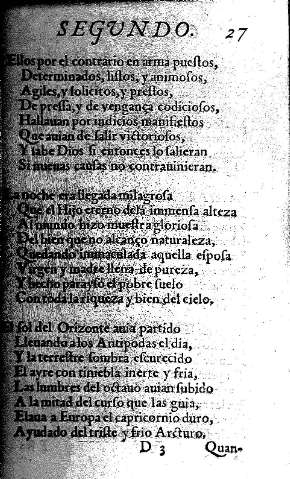 SEGVNDO. 27
Ellos por el contrario en arma puestos,
Determinados, listos, y animosos,
Agiles, y solicitos, y prestos,
De pressa, y de vengança codiciosos,
Hallauan por indicios manifiestos
Que auian de salir victoriosos,
Y sabe Dios si entonces lo salieran
Si nueuas causas no contrauinieran.
La noche era llegada milagrosa
Que el Hijo eterno de la immensa alteza
Al mundo hizo muestra gloriosa
Del bien que no alcançò naturaleza,
Quedando immaculada aquella esposa
Virgen y madre llena de pureza,
Y hecho parayso el pobre suelo
Con toda la riqueza y bien del cielo.
El sol del Orizonte auia partido
Lleuando a los Antipodas el dia,
Y la terrestre sombra escurecido
El ayre con tiniebla inerte y fria,
Las lumbres del octauo auian subido
A la mitad del curso que las guia,
Elaua a Europa el capricornio duro,
Ayudado del triste y frio Arcturo.
D 3 Quan-